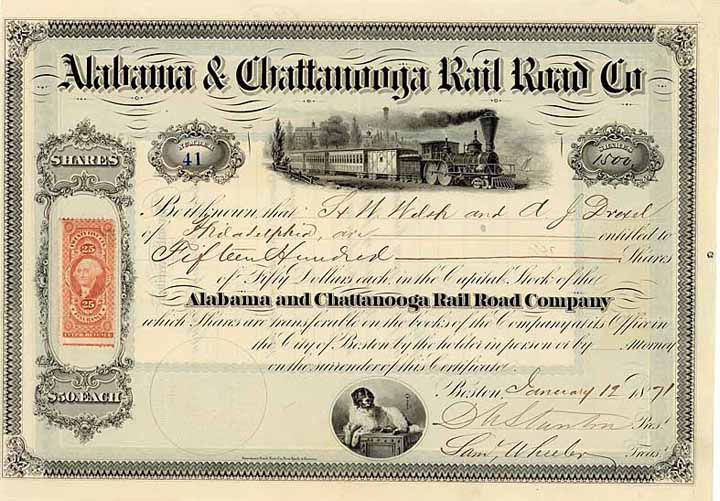 Alabama & Chattanooga Rail Road Co
NUMBER
41
SHARES
1500
SHARES
$50. EACH
25
25
Be it known that H. W. Welsh and A J Drexel
of Philadelphia, are entitled to
Fifteen Hundred Shares
of Fifty Dollars each, in the Capital Stock of the
Alabama and Chattanooga Rail Road Company
which Shares are transferable on the books of the Company at its Office in
the City of Boston by the holder in person or by Attorney
on the surrender of this Certificate.
Boston, January 12 1871
D N Stanton Prest.
Saml. Wheeler Treas.
American Bank Note Co. New York & Boston.